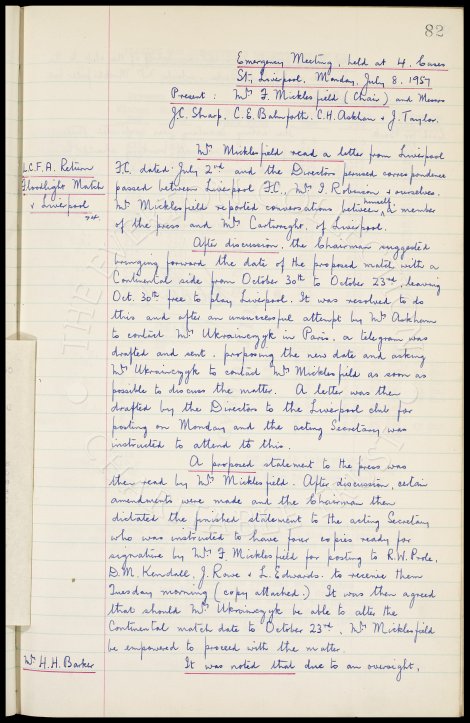 82
Emergency Meeting, held at 4, Cases
St, Liverpool, Monday, July 8, 1957
Present: Mr. F. Micklesfield (Chair) and Messrs
J.C. Sharp, C.E. Balmforth, C.H. Askham & J. Taylor.
Mr. Micklesfield read a letter from Liverpool
L.C.F.A. Return
F.C. dated July 2nd and the Directors perused correspondence
Floodlight Match
passed between Liverpool F.C., Mr. J. Robinson & ourselves.
v Liverpool
Mr Micklesfield reported conversations between himself, a member
of the press and Mr. Cartwright, of Liverpool.
After discussion, the Chairman suggested
bringing forward the date of the proposed match with a
Continental side from October 30th to October 23rd, leaving
Oct. 30th free to play Liverpool. It was resolved to do
this and after an unsuccessful attempt by Mr. Askham
to contact Mr. Ukrainczyk in Paris, a telegram was
drafted and sent, proposing the new date and asking
Mr. Ukrainczyk to contact Mr. Micklesfield as soon as
possible to discuss the matter. A letter was then
drafted by the Directors to the Liverpool club for
posting on Monday and the acting Secretary was
instructed to attend to this.
A proposed statement to the press was
then read by Mr. Micklesfield. After discussion, certain
amendments were made and the Chairman then
dictated the finished statement to the acting Secretary
who was instructed to have four copies ready for
signature by Mr. F. Micklesfield for posting to R.W. Prole,
D.M. Kendall, J. Rowe & L. Edwards, to receive them
Tuesday morning (copy attached.) It was then agreed
that should Mr. Ukrainczyk be able to alter the
Continental match date to October 23rd, Mr. Micklesfield
be empowered to proceed with the matter.
Mr. H.H. Barker
It was noted that due to an oversight,